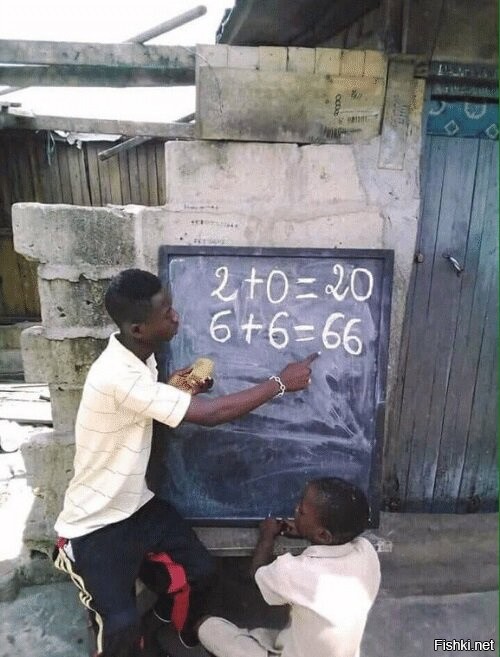 2+0=20
6+6=66
Fishki.net